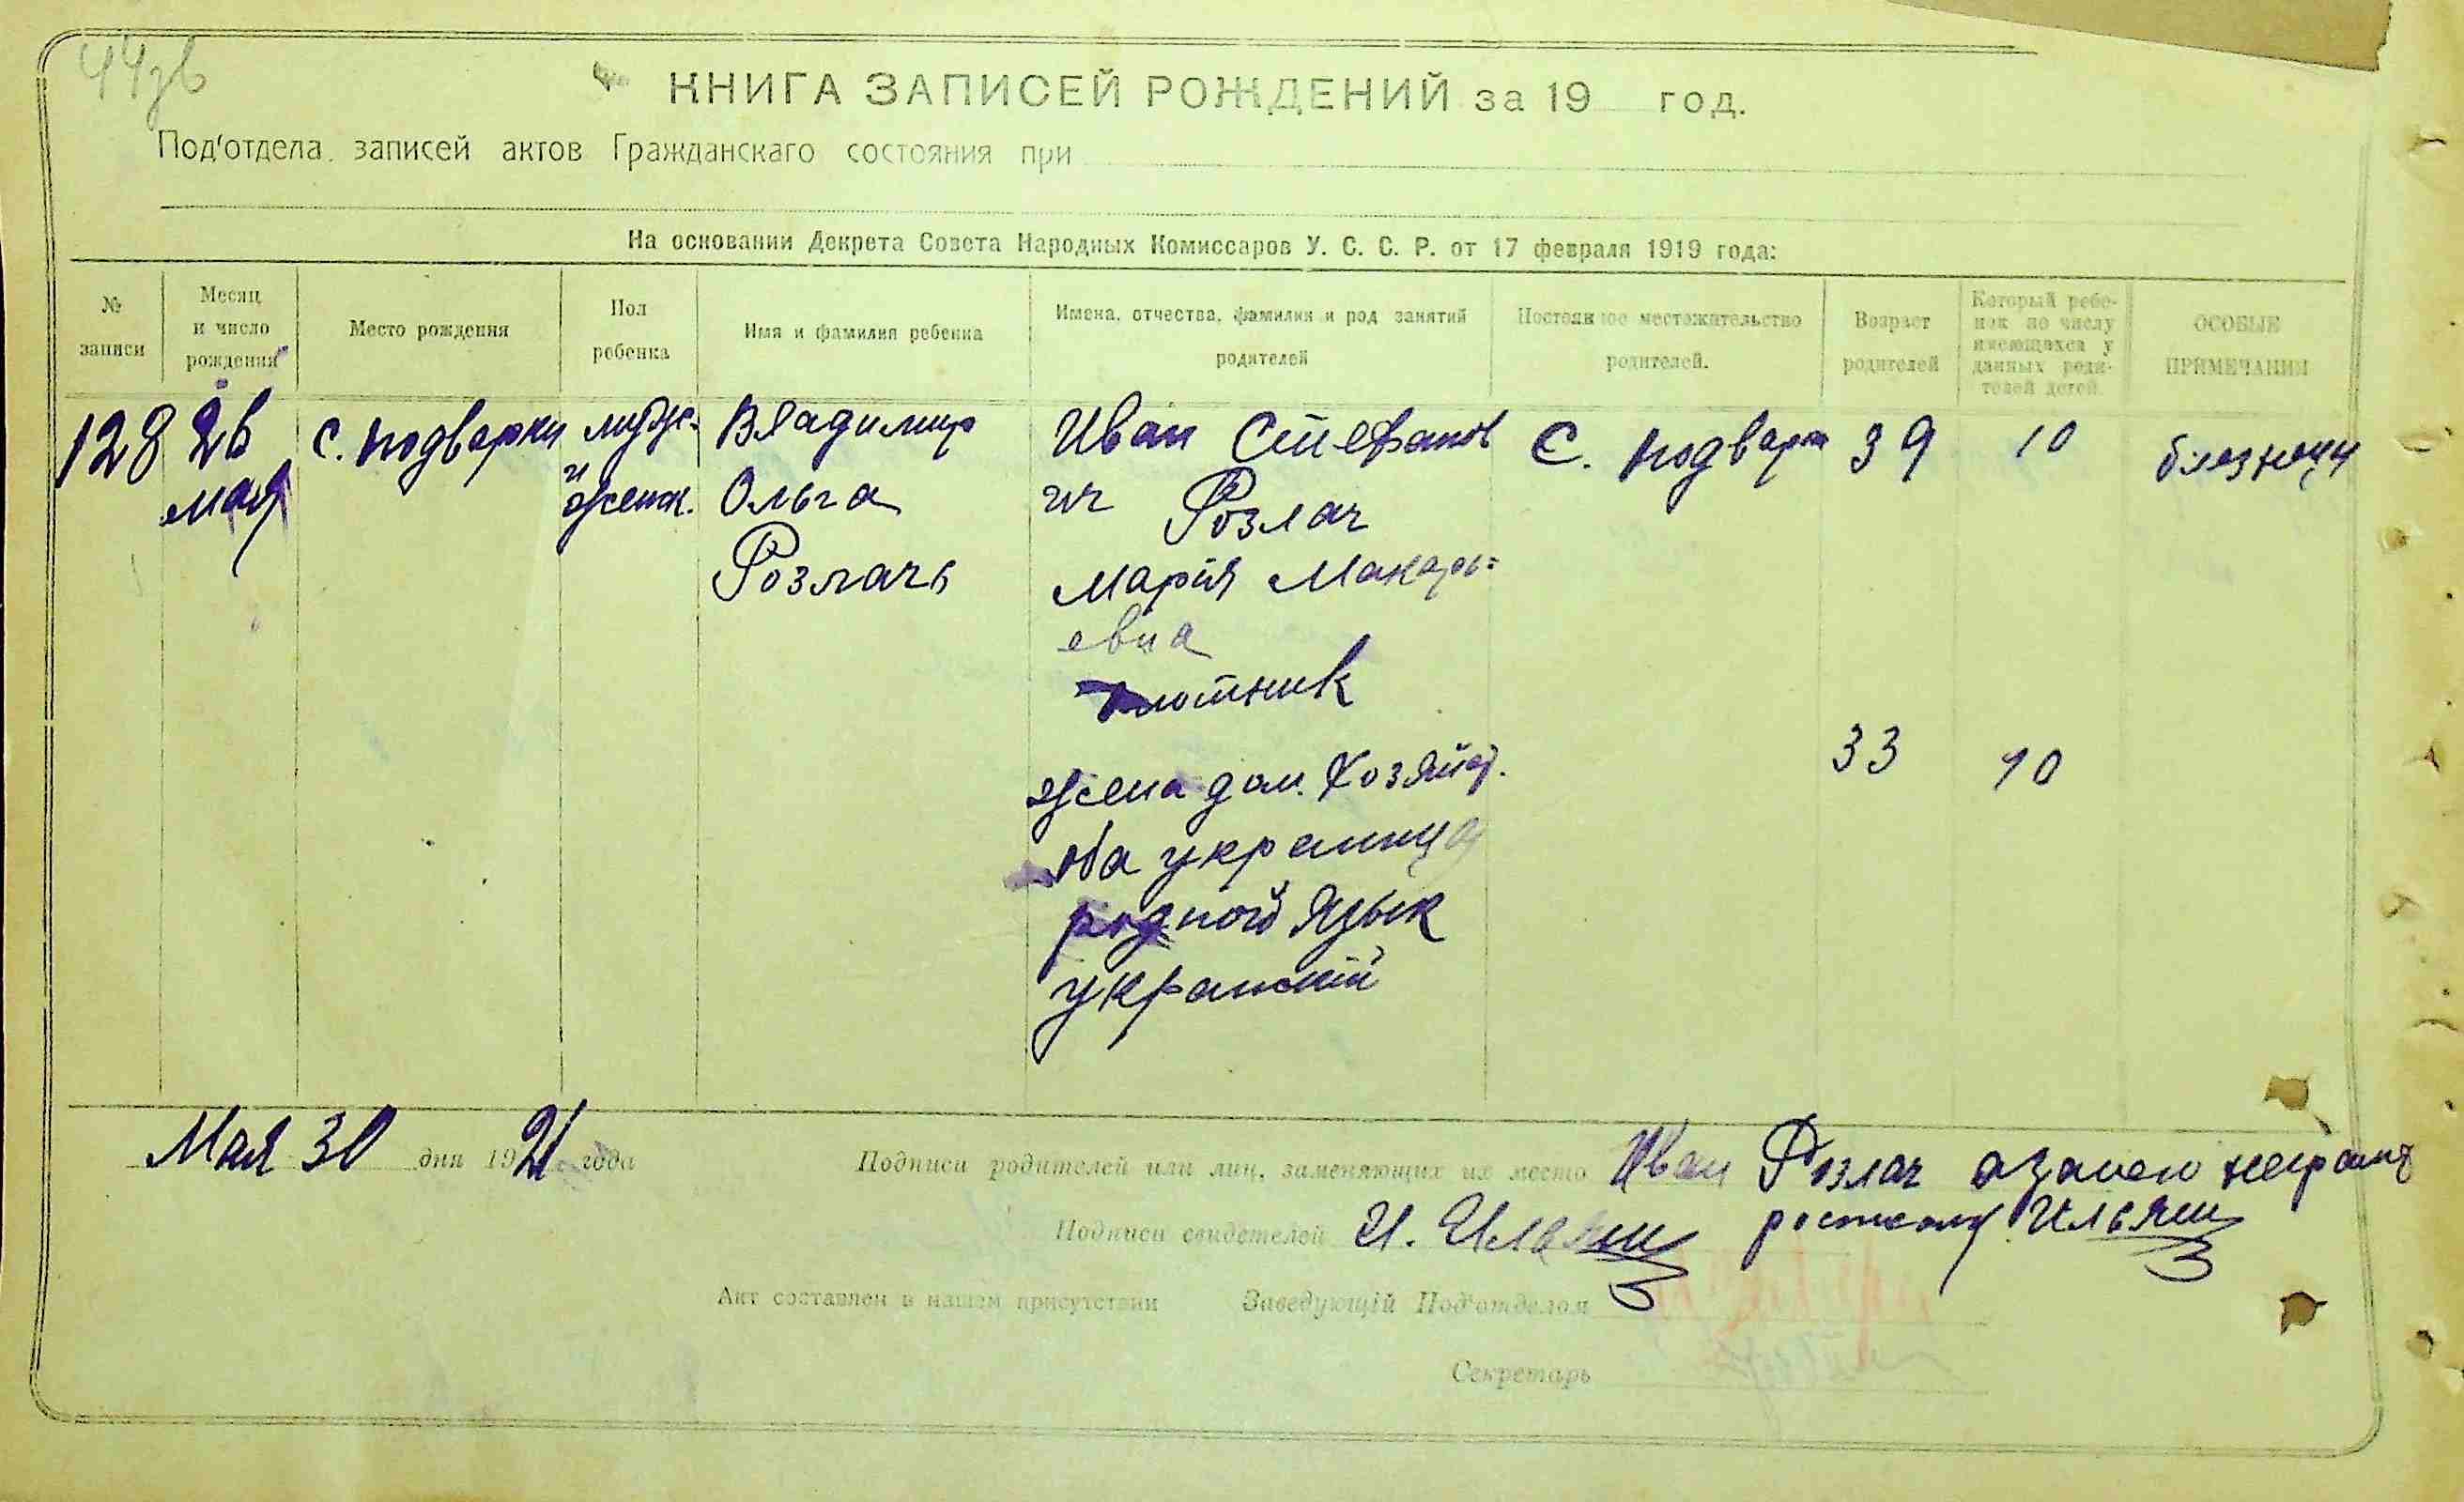 КНИГА ЗАПИСЕЙ РОЖДЕНИЙ за 19 год.
Под'отдела записей актов Гражданскаго состояния при
На основании Декрета Совета Народных Комиссаров У. С. С. Р. от 17 февраля 1919 года:
№ записи
Месяц и число рождения
Место рождения
Пол ребенка
Имя и фамилия ребенка
Имена, отчества, фамилия и род занятий родителей
Постоянное местожительство родителей.
Возраст родителей
Который ребенок по числу имеющихся у данных родителей детей.
ОСОБЫЕ ПРИМЕЧАНИЯ
128
26
мая
с. Подворки
муж.
и
женж.
Владимир
Ольга
Розлачь
Иван Стефанов
ич Розлач
Мария Макарь=
евна
плотник
жена дом. хозяйст.
оба украинца
родной язык
украинский
с. Подворки
39
33
10
10
близнецы
Мая 30 дня 1921 года
Подписи родителей или лиц, заменяющих их место Иван Розлач
Ильяш
Подписи свидетелей И. Ильяш
Акт составлен в нашем присутствии Заведующій Под'отделом
Секретарь